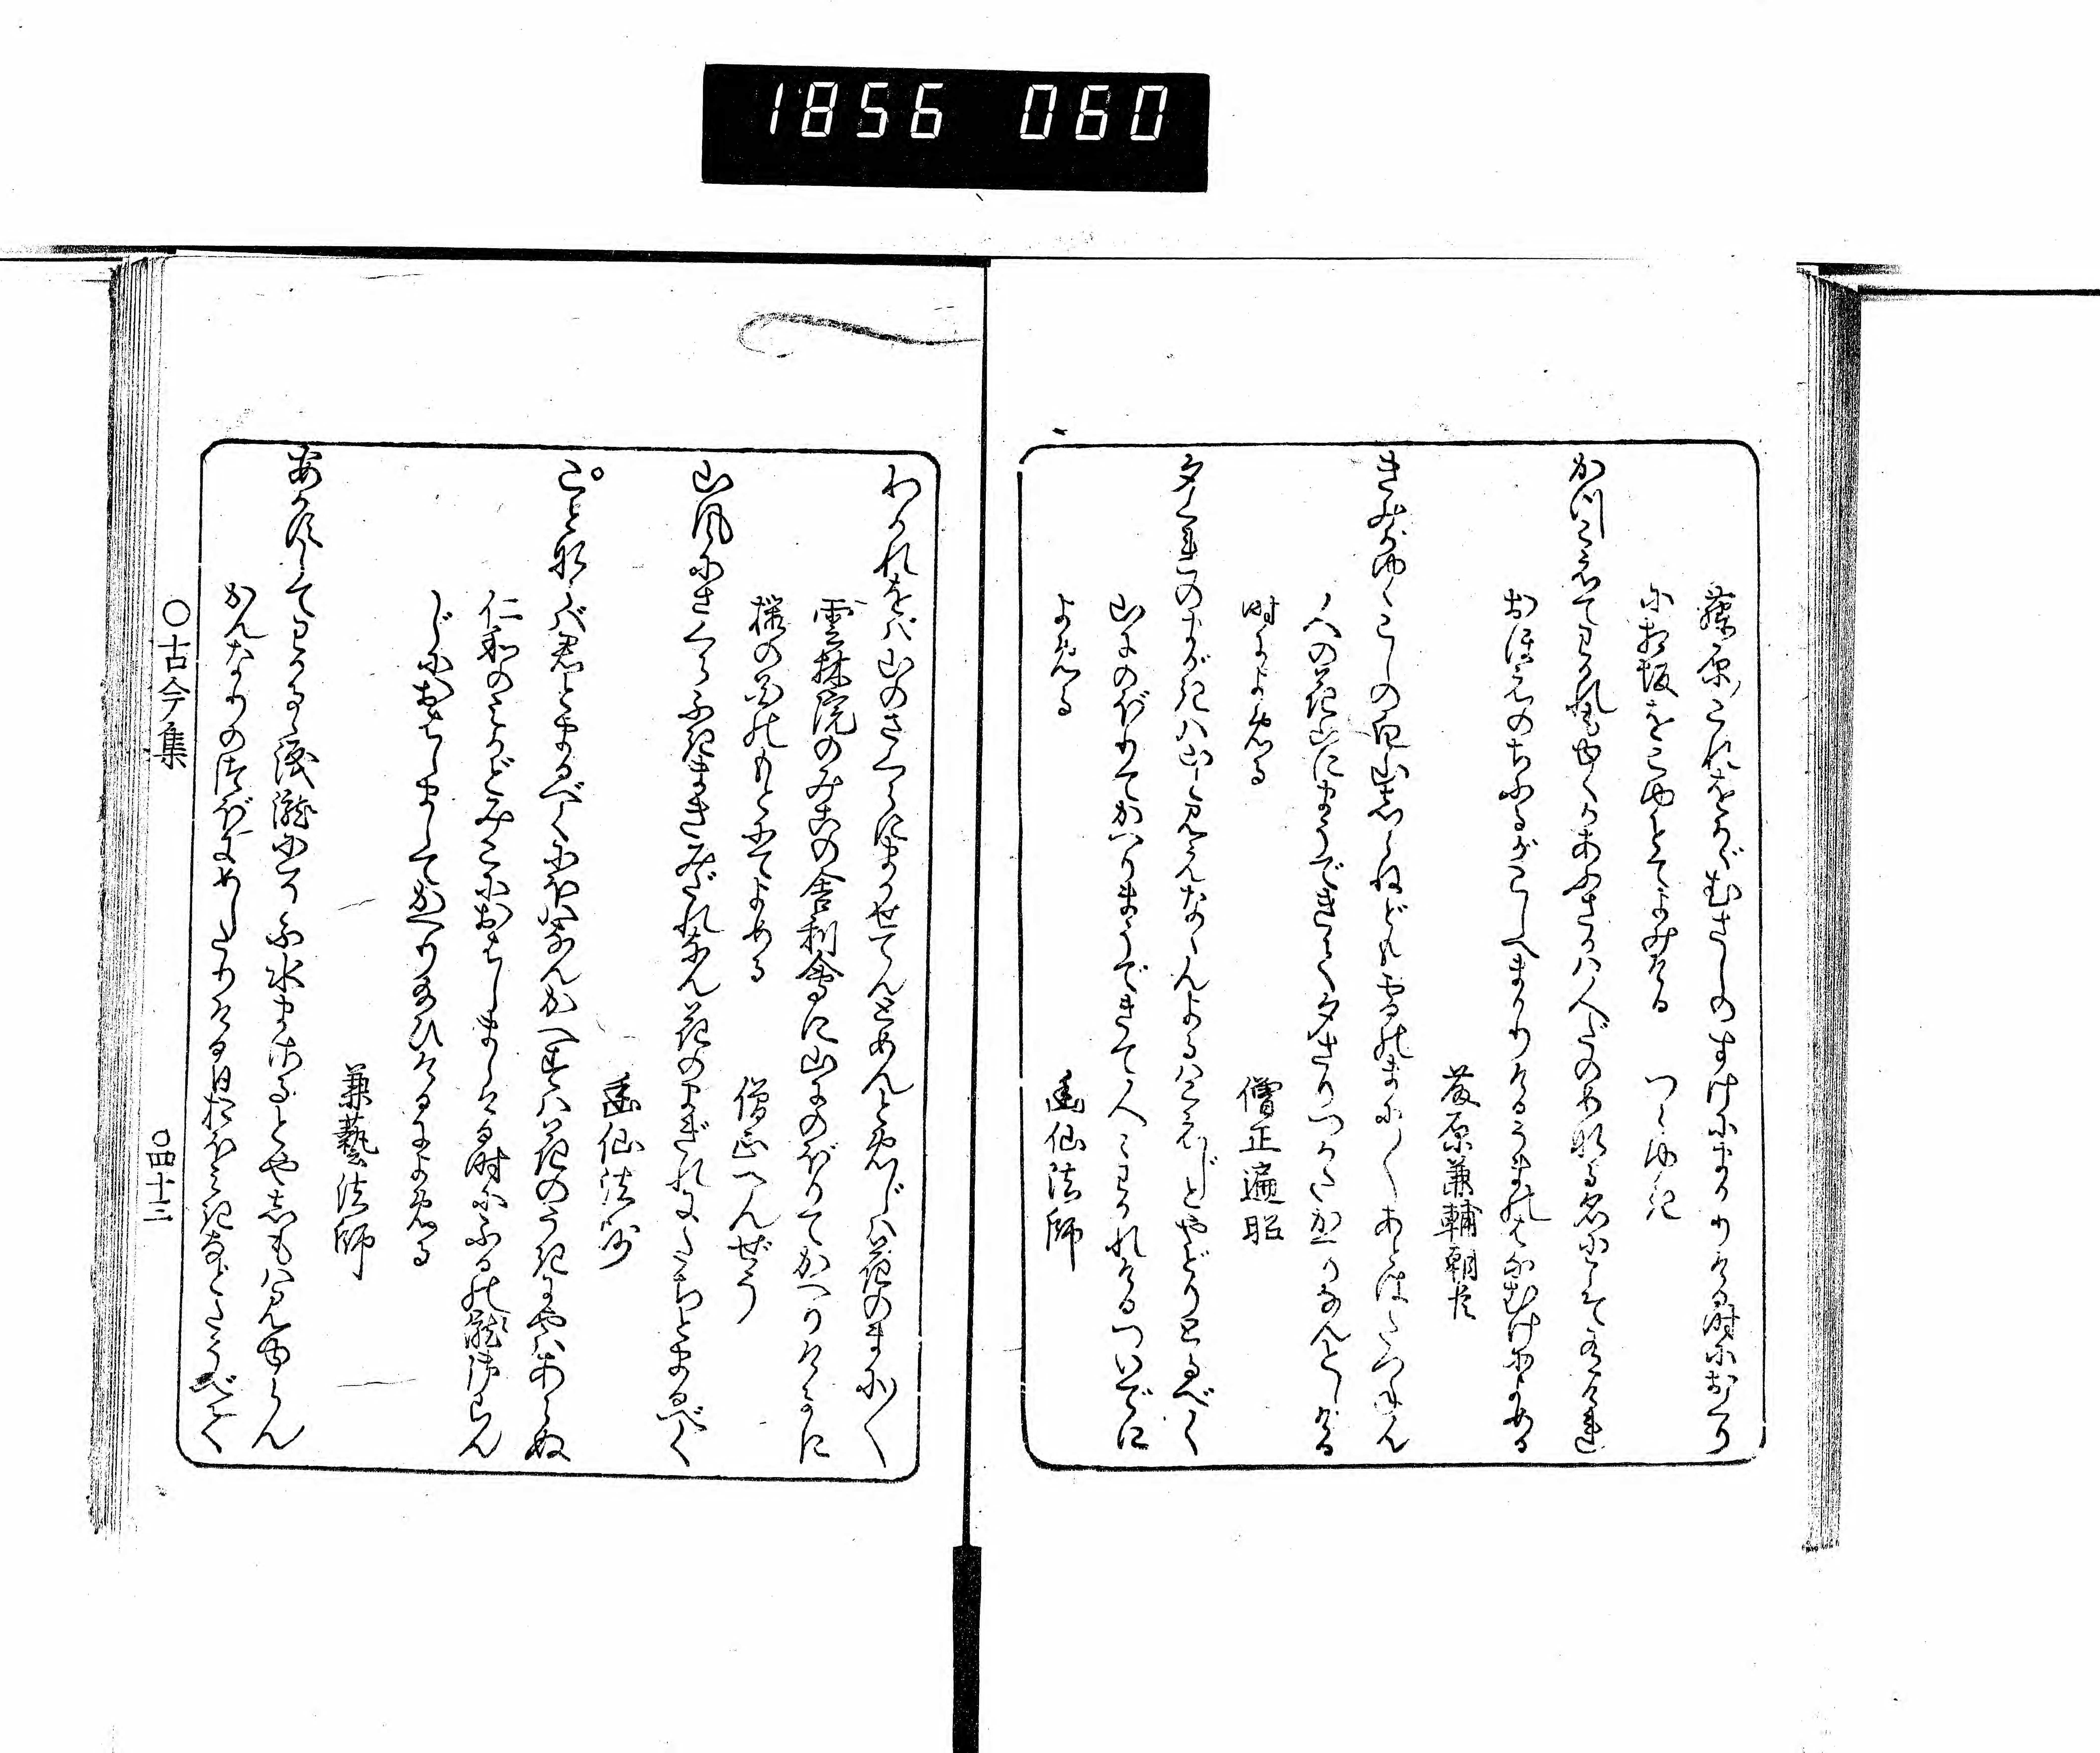 1856 060
藤原のこれをかがむさしのすけにまかりける時におくり
に相坂をこゆとてよみける つらゆき
かつこえてわかれもゆくかあふさかは人だのめなる名にこそ有けれ
おほえのちふるがこしへまかりけるうまのはなむけによめる
藤原兼輔朝臣
きみがゆくこしの白山しらねども雪のまに〳〵あとはたづねん
人の花山にまうできて夕さりつかたかへりなんとしける
時によめる 僧正遍昭
夕ぐれのまがきは山と見えなゝんよるはこえじとやどりとるべく
山にのぼりてかへりまうできて人々わかれけるついでに
よめる 幽仙法師
わかれをば山のさくらにまかせてんとめんとめじは花のまに〳〵
雲林院のみこの舎利會に山にのぼりてかへりけるに
櫻の花のもとにてよめる 僧正へんぜう
山風にさくらふきまきみだれなん花のまぎれにたちとまるべく
幽仙法師
ことならば君とまるべくにほはなんかへすは花のうきにやはあらぬ
仁和のみかどみこにおはしましける時にふるの瀧御らん
じにおはしましてかへり給ひけるによめる
兼藝法師
あかずしてわかるゝ涙瀧にそふ水まさるとやしもは見ゆらん
かんなりのつぼにめしたりける日おほみきなどたうべて
○古今集
○四十三